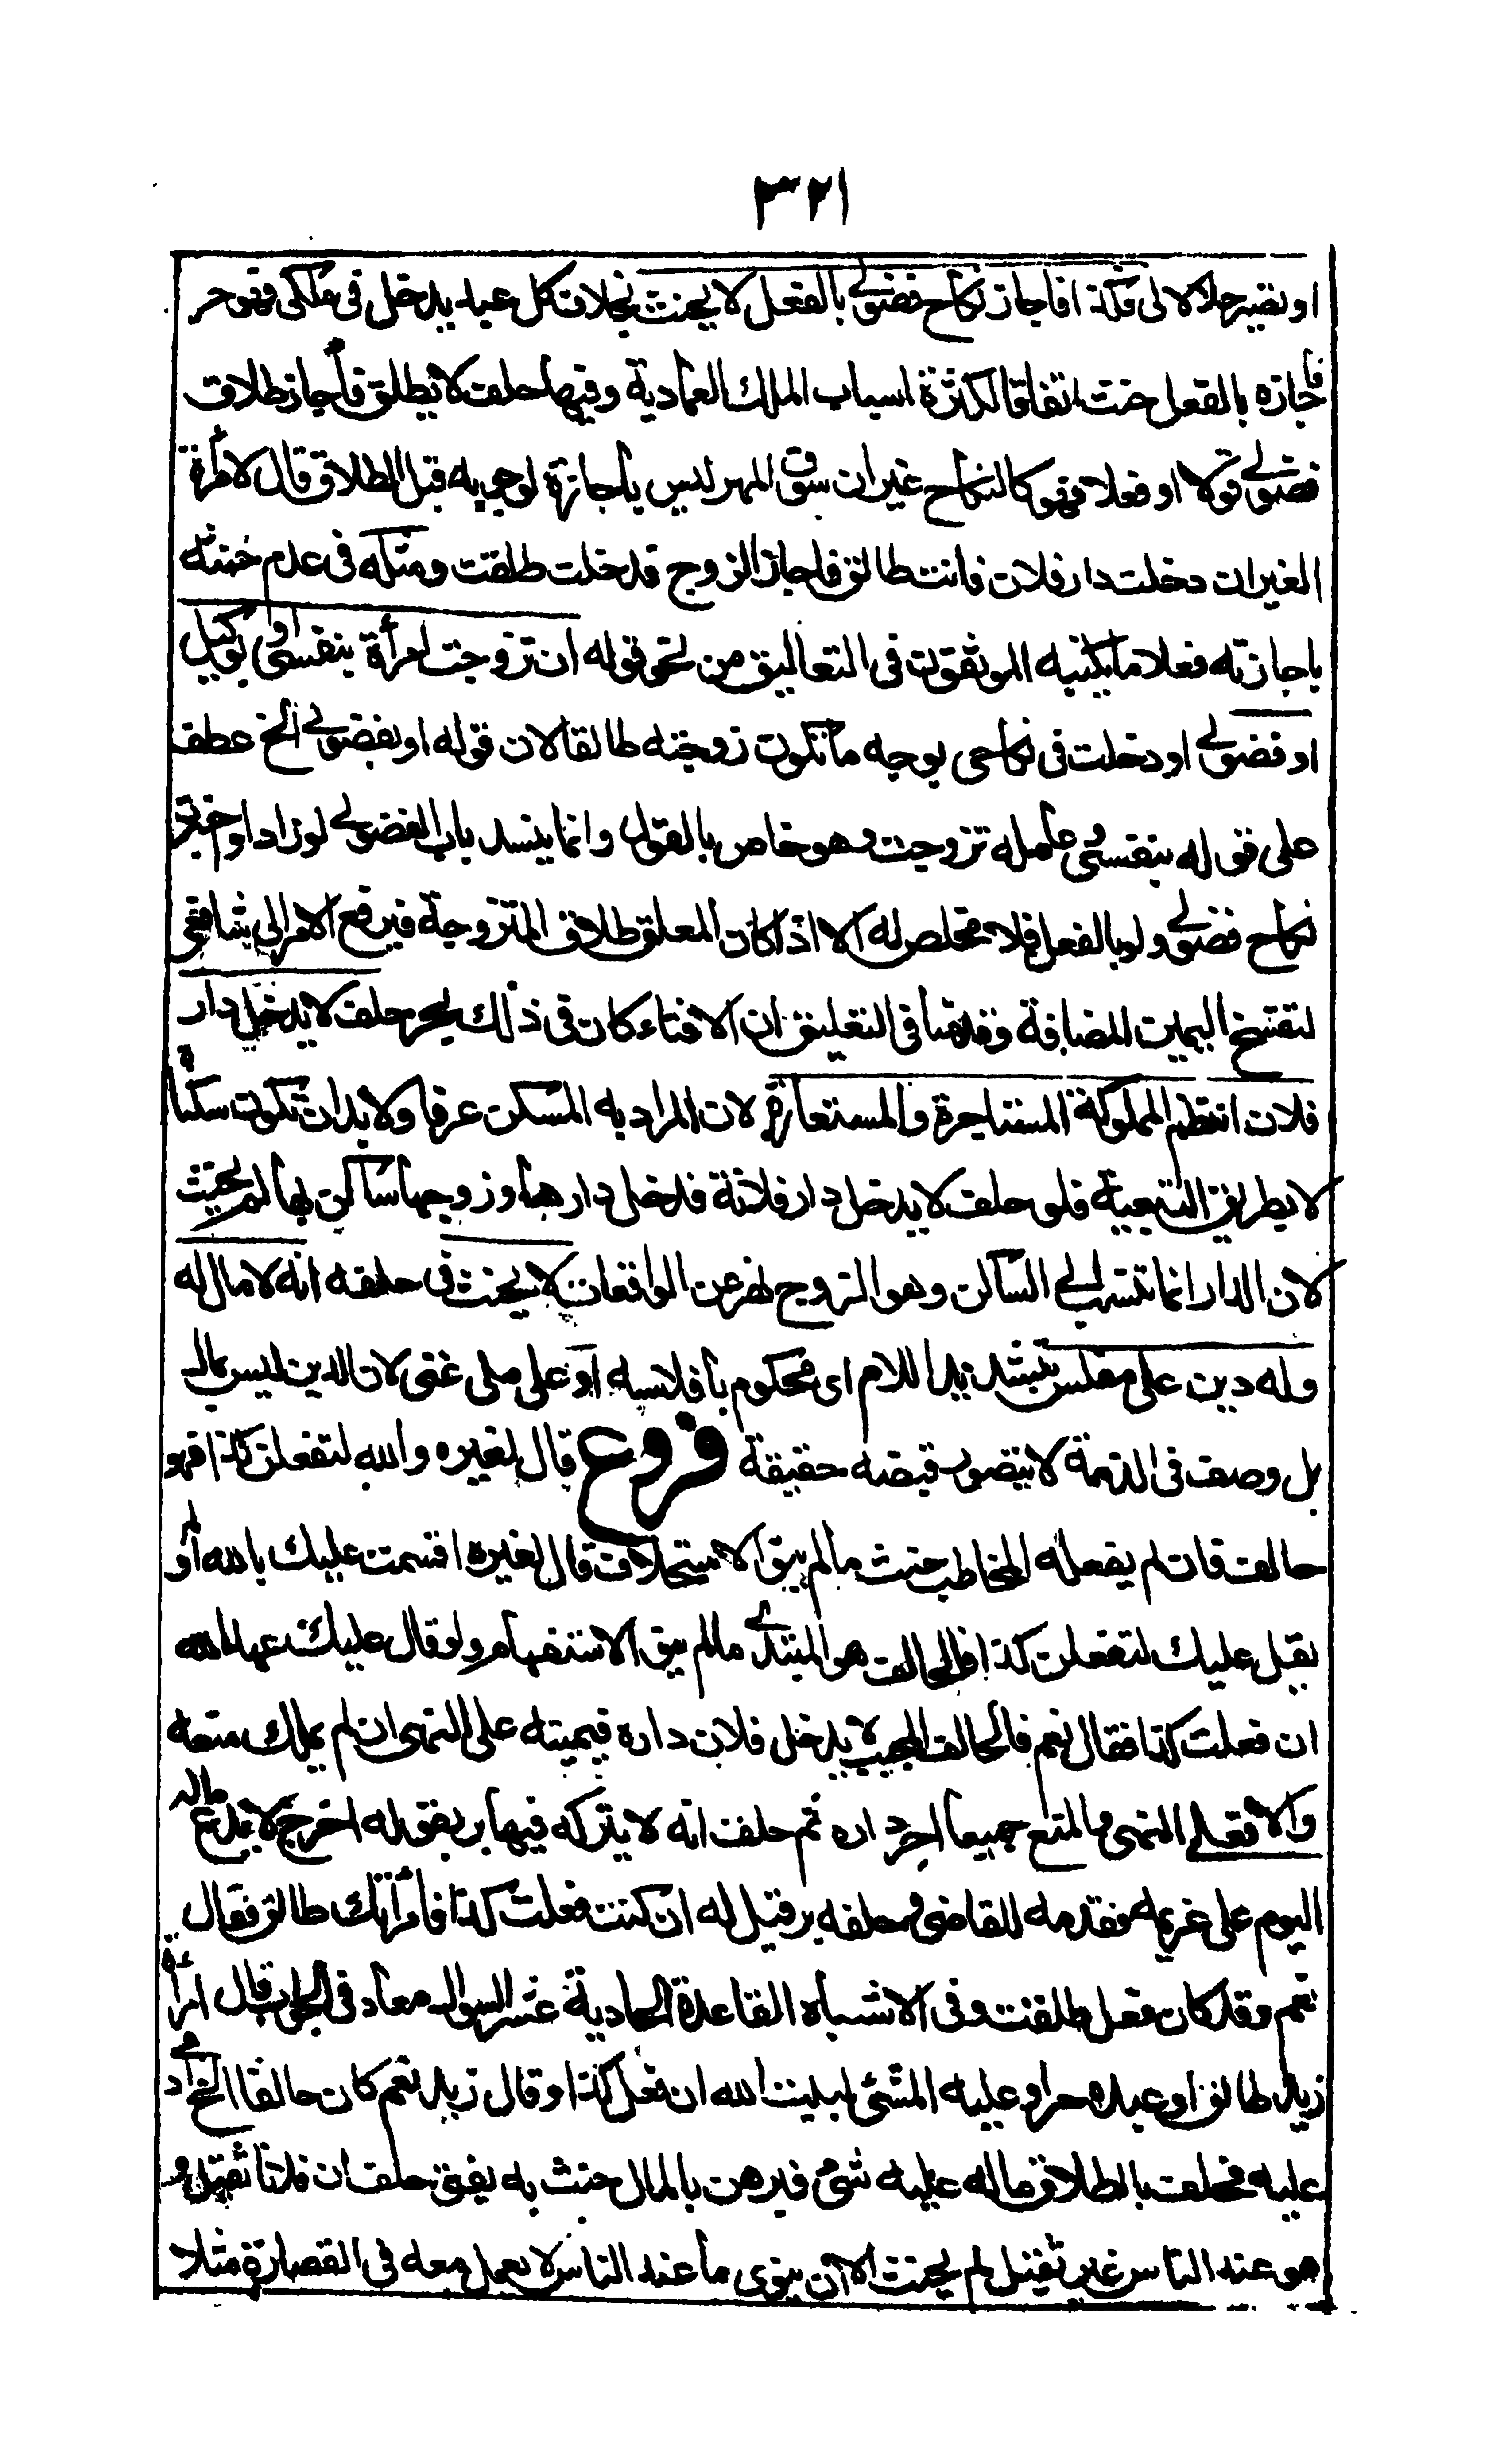 ٣٢١
او تصير حلالا لى فكذا فاجاز نكاح فضولى بالفعل لا يحنث بخلاف كل عبد يدخل فى ملكى فهو حر
فاجازه بالفعل حنث اتفاقا لكثرة اسباب الملك العمادية وفيها حلف لا يطلق فاجاز طلاق
فضولى قولا او فعلا فهو كالنكاح غيران سوق المهر ليس باجازة لوجوبه قبل الطلاق قال لامرأة
الغير ان دخلت دار فلان فانت طالق فاجاز الزوج فدخلت طلقت ومثله فى عدم حنثه
باجازته فعلا ما يكتبه الموثقون فى التعاليق من نحو قوله ان تزوجت امرأة بنفسى او بوكيل
او فضولى او دخلت فى نكاحى بوجه ما تكون زوجته طالقا لان قوله او بفضولى الخ عطف
على قوله بنفسى و عامله تزوجت وهو خاص بالقول وانما ينسد باب الفضولى لو زاد او اجزت
نكاح فضولى ولو بالفعل فلا مخلص له الا اذا كان المعلق طلاق المتزوجة فيرفع الامر الى شافعى
لتفسخ اليمين المضافة وقدمنا فى التعليق ان الافتاء كاف فى ذلك بحر حلف لا يدخل دار
فلان انتظم المملوكة المستاجرة والمستعارة لان المراد به المسكن عرفا ولا بد ان تكون سكناه
لا بطريق التبعية فلو حلف لا يدخل دار فلانة فدخل دارها وزوجها ساكن بها لم يحنث
لان الدار انما تنسب الى الساكن وهو الزوج نهر عن الواقعات لا يحنث فى حلفه انه لا مال له
وله دين على مفلس بتشديد اللام اى محكوم بافلاسه او على ملى غنى لان الدين ليس بمال
بل وصف فى الذمة لا يتصور قبضه حقيقة فروع قال لغيره والله لتفعلن كذا فهو
حالف فان لم يفعله المخاطب حنث ما لم ينو الاستحلاف قال لغيره اقسمت عليك بالله او لم
يقل عليك لتفعلن كذا فالحالف هو المبتدى ما لم ينو الاستفهام ولو قال عليك عهد الله
ان فعلت كذا فقال نعم فالحالف المجيب لا يدخل فلان داره فيمينه على النهى ان لم يملك منعه
والا فعلى النهى والمنع جميعا اجر داره ثم حلف انه لا يتركه فيها بر بقوله اخرج لا يدع ماله
اليوم على غريمه فقدمه للقاضى و حلفه بر قيل له ان كنت فعلت كذا فامرأتك طالق فقال
نعم وقد كان فعل طلقت وفى الاشباه القاعدة الحادية عشر السوال معاد فى الجواب قال امرأة
زيد طالق او عبده حر او عليه المشى لبيت الله ان فعل كذا وقال زيد نعم كان حالفا الخ ادعى
عليه فحلف بالطلاق ما له عليه شئ فبرهن بالمال حنث به يفتى حلف ان فلانا ثقيل و
هو عند الناس غير ثقيل لم يحنث الا ان ينوى ما عند الناس لا يعمل معه فى القصارة مثلا